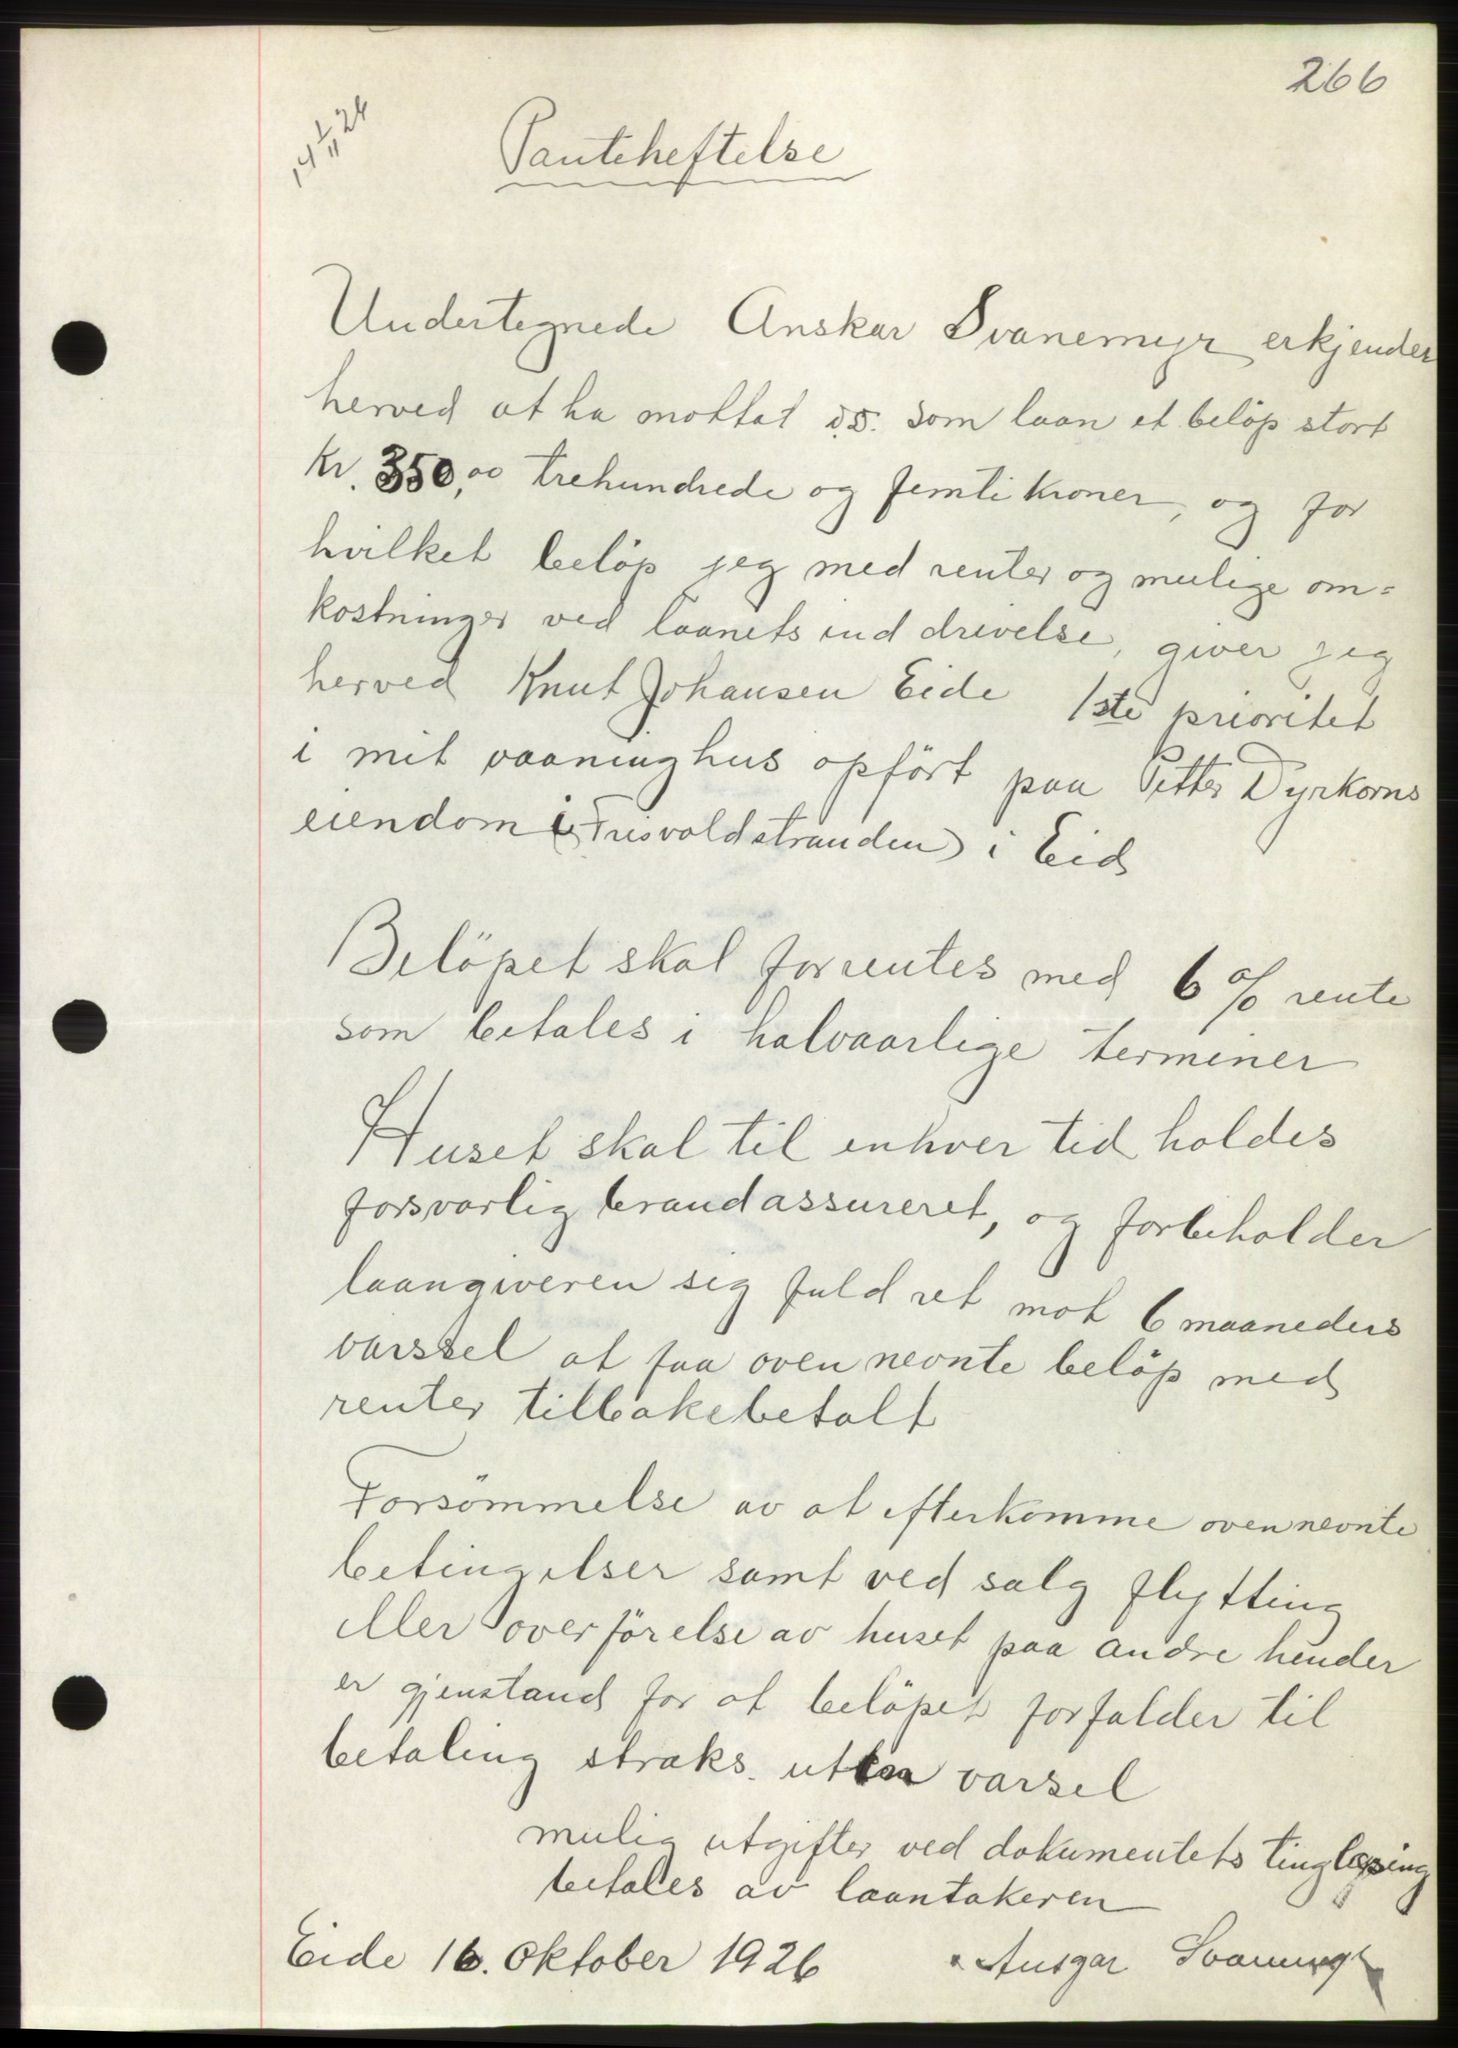 266
14 1/11 26
Panteheftelse
Undertegnede Anskar Svanemyr erkjender
herved at ha mottat d.d. som laan et beløp stort
Kr. 350,00 trehundrede og femti kroner, og for
hvilket beløp jeg med renter og mulige om=
kostninger ved laanets inddrivelse, giver jeg
herved Knut Johansen Eide 1ste prioritet
i mit vaaninghus opført paa Petter Dyrkorns
eiendom (Frisvoldstranden) i Eid
Beløpet skal forrentes med 6 % rente
som betales i halvaarlige terminer
Huset skal til enhver tid holdes
forsvarlig brandassureret, og forbeholder
laangiveren sig fuld ret mot 6 maaneders
varssel at faa ovennevnte beløp med
renter tilbakebetalt
Forsømmelse av at efterkomme ovennevnte
betingelser samt ved salg flytting
eller overførelse av huset paa andre hender
er gjenstand for at beløpet forfalder til
betaling straks. uten varsel
mulig utgifter ved dokumentets tinglysing
betales av laantakeren
Eide 16. Oktober 1926 Ansgar Svanemyr